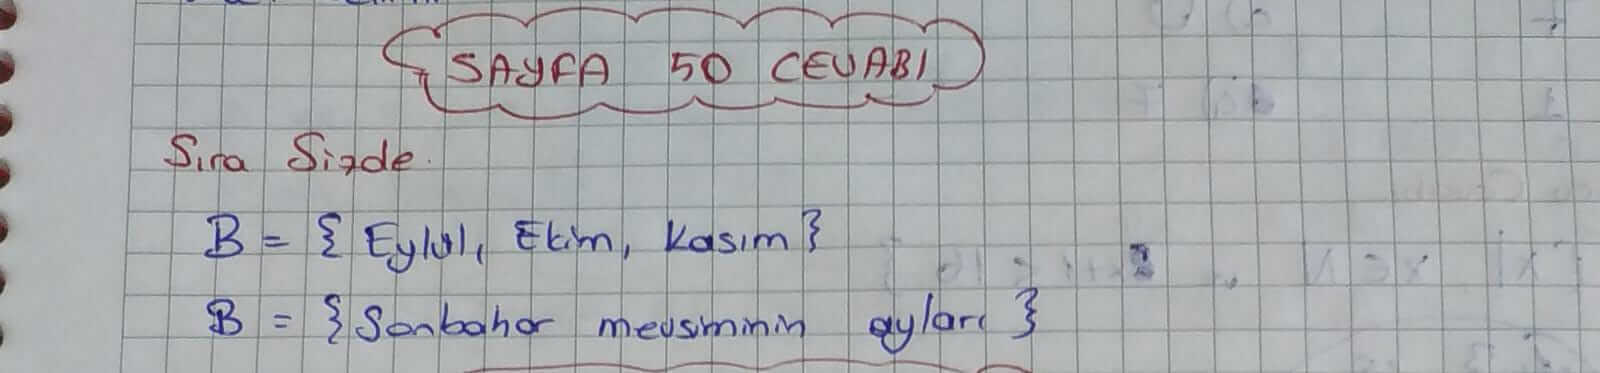 SAYFA 50 CEVABI
Sıra Sizde.
B = { Eylül, Ekim, Kasım }
B = { Sonbahar mevsiminin ayları }